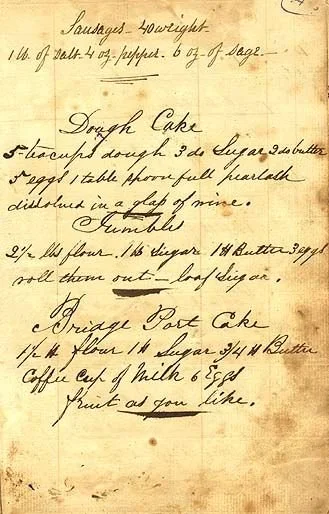 Sausages - 40 weight
1 lb. of Salt 4 oz. pepper. 6 oz of Sage.
Dough Cake
5 teacups dough 3 do Sugar 2 do butter
5 eggs 1 table spoon full pearlash
dissolved in a glass of wine.
Jumbles
2 1/2 lbs flour. 1 lb Sugar 1 H Butter 3 eggs
roll them out - loaf Sugar.
Bridge Port Cake
1 1/2 H flour 1 H Sugar 3/4 H Butter
Coffee Cup of Milk 6 Eggs
fruit as you like.